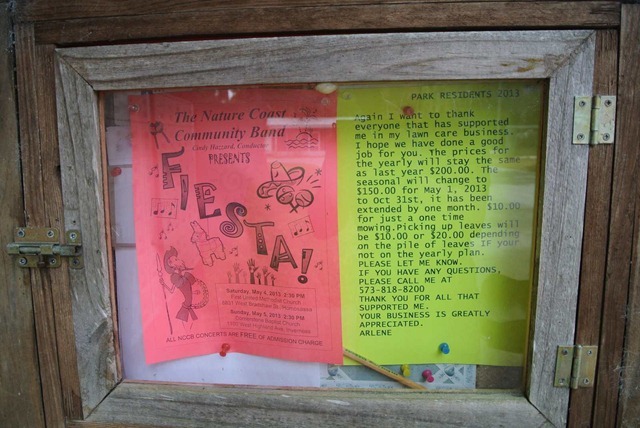 The Nature Coast
Community Band
Cindy Hazzard, Conductor
PRESENTS
FIESTA!
Saturday, May 4, 2013, 2:30 PM
First United Methodist Church
Sunday, May 5, 2013, 2:30 PM
Cornerstone Baptist Church
ALL NCCB CONCERTS ARE FREE OF ADMISSION CHARGE
PARK RESIDENTS 2013
Again I want to thank
everyone that has supported
me in my lawn care business.
I hope we have done a good
job for you. The prices for
the yearly will stay the same
as last year $200.00. The
seasonal will change to
$150.00 for May 1, 2013
to Oct 31st, it has been
extended by one month. $10.00
for just a one time
mowing.Picking up leaves will
be $10.00 or $20.00 depending
on the pile of leaves IF your
not on the yearly plan.
PLEASE LET ME KNOW.
IF YOU HAVE ANY QUESTIONS,
PLEASE CALL ME AT
573-818-8200
THANK YOU FOR ALL THAT
SUPPORTED ME.
YOUR BUSINESS IS GREATLY
APPRECIATED.
ARLENE